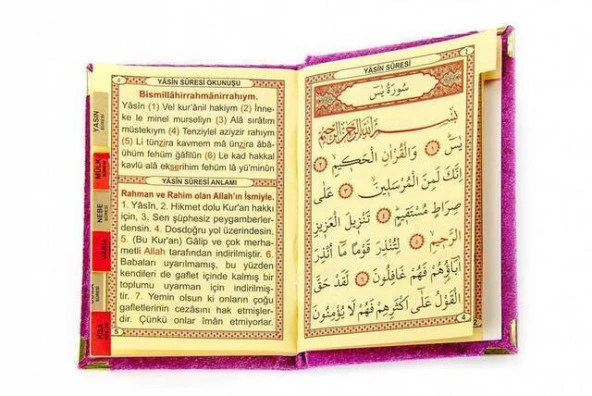 YÂSÎN SÛRESİ OKUNUŞU
Bismillâhirrahmânirrahıym.
Yâsîn (1) Vel kur'ânil hakiym (2) İnne-
ke le minel murseliyn (3) Alâ sırâtim
müstekıym (4) Tenziylel aziyzir rahıym
(5) Li tünzira kavmem mâ ünzira âbâ-
ühüm fehüm gâfilûn (6) Le kad hakkal
kavlü alâ ekserihim fehüm lâ yü'minûn
YÂSÎN SÛRESİ ANLAMI
Rahman ve Rahim olan Allah'ın İsmiyle.
1. Yâsîn, 2. Hikmet dolu Kur'an hakkı
için, 3. Sen şüphesiz peygamberler-
densin. 4. Dosdoğru yol üzerindesin.
5. (Bu Kur'an) Gâlip ve çok merha-
metli Allah tarafından indirilmiştir. 6.
Babaları uyarılmamış, bu yüzden
kendileri de gaflet içinde kalmış bir
toplumu uyarman için indirilmiş-
tir. 7. Yemin olsun ki onların çoğu
gafletlerinin cezasını hak etmişler-
dir. Çünkü onlar îmân etmiyorlar.
YASİN
MÜLK
NEBE
YÂSÎN SÛRESİ
سُورَةُ يٰسٓ
بِسْمِ اللّٰهِ الرَّحْمٰنِ الرَّحِيمِ
يٰسٓ ﴿١﴾ وَالْقُرْاٰنِ الْحَكِيمِ ﴿٢﴾
اِنَّكَ لَمِنَ الْمُرْسَلِينَ ﴿٣﴾ عَلٰى
صِرَاطٍ مُسْتَقِيمٍ ﴿٤﴾ تَنْزِيلَ الْعَزِيزِ
الرَّحِيمِ ﴿٥﴾ لِتُنْذِرَ قَوْمًا مَٓا اُنْذِرَ
اٰبَٓاؤُهُمْ فَهُمْ غَافِلُونَ ﴿٦﴾ لَقَدْ حَقَّ
الْقَوْلُ عَلٰٓى اَكْثَرِهِمْ فَهُمْ لَا يُؤْمِنُونَ